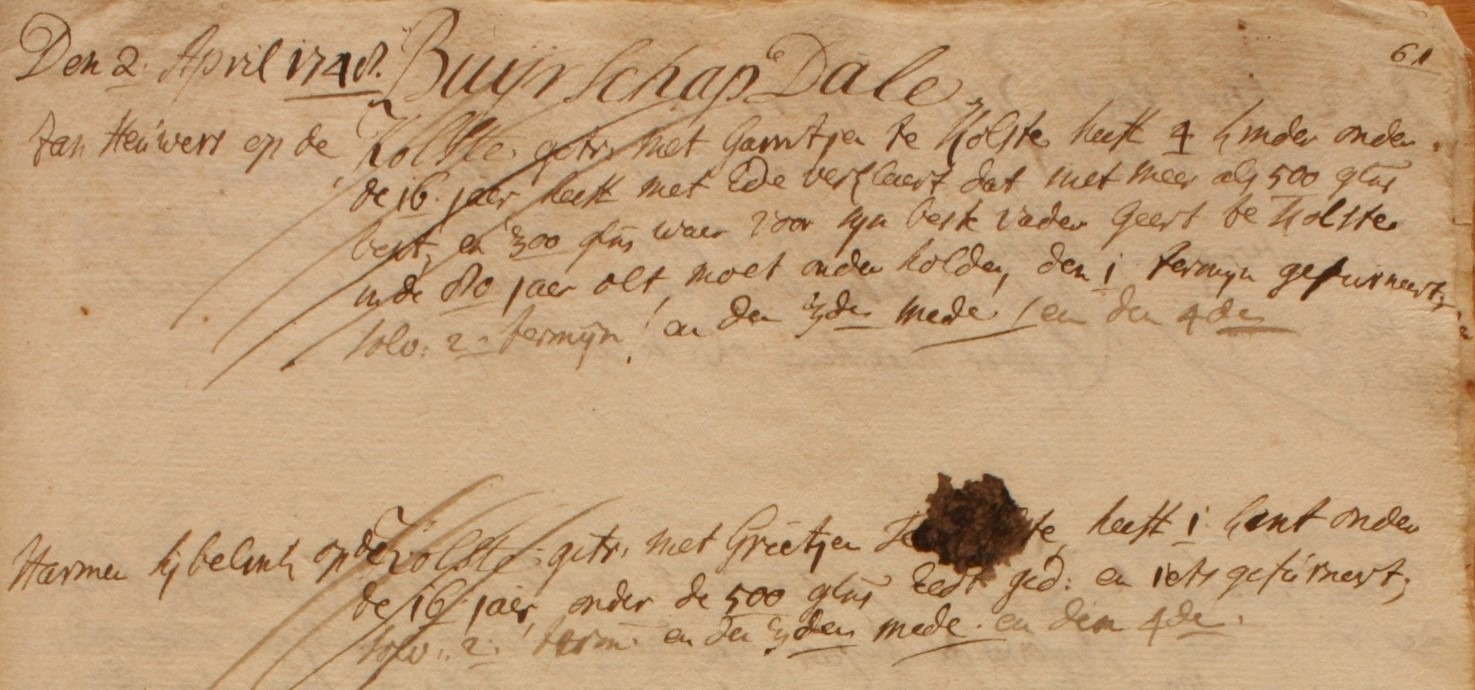 61
Den 2. April 1748. Buijrschap Dale
Jan Heuwers op de Holste. getr. met Garritjen te Holste heeft 4 kinder onder
de 16. jaer heeft met Ede verklaert dat niet meer als 500 glns
besit, en 300 glns waer voor sijn beste vader Geert te Holste
in de 80 jaer olt moet onder holden, den 1 termijn gefurneert,
solv: 2: termijn, en den 3den mede / en den 4den
Harmen Hijbelink op de Holste. getr. met Grietjen te heeft 1 kint onder
de 16. jaer, onder de 500 glns Eedt ged: en iets gefurneert,
solv: 2: term: en den 3den mede. en den 4de.